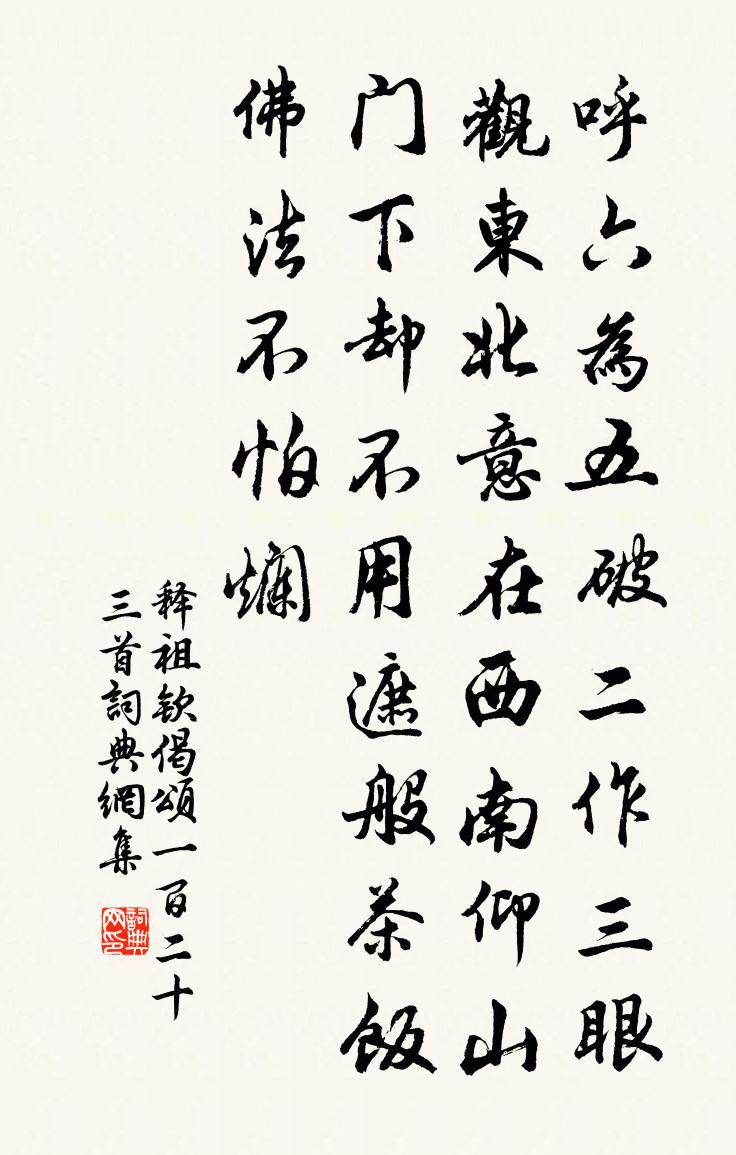 呼六為五破二作三眼
觀東北意在西南仰山
门下却不用遮般茶飯
佛法不怕爛
释祖欽偈頌一百二十
三首詞典網集
詞典
网印